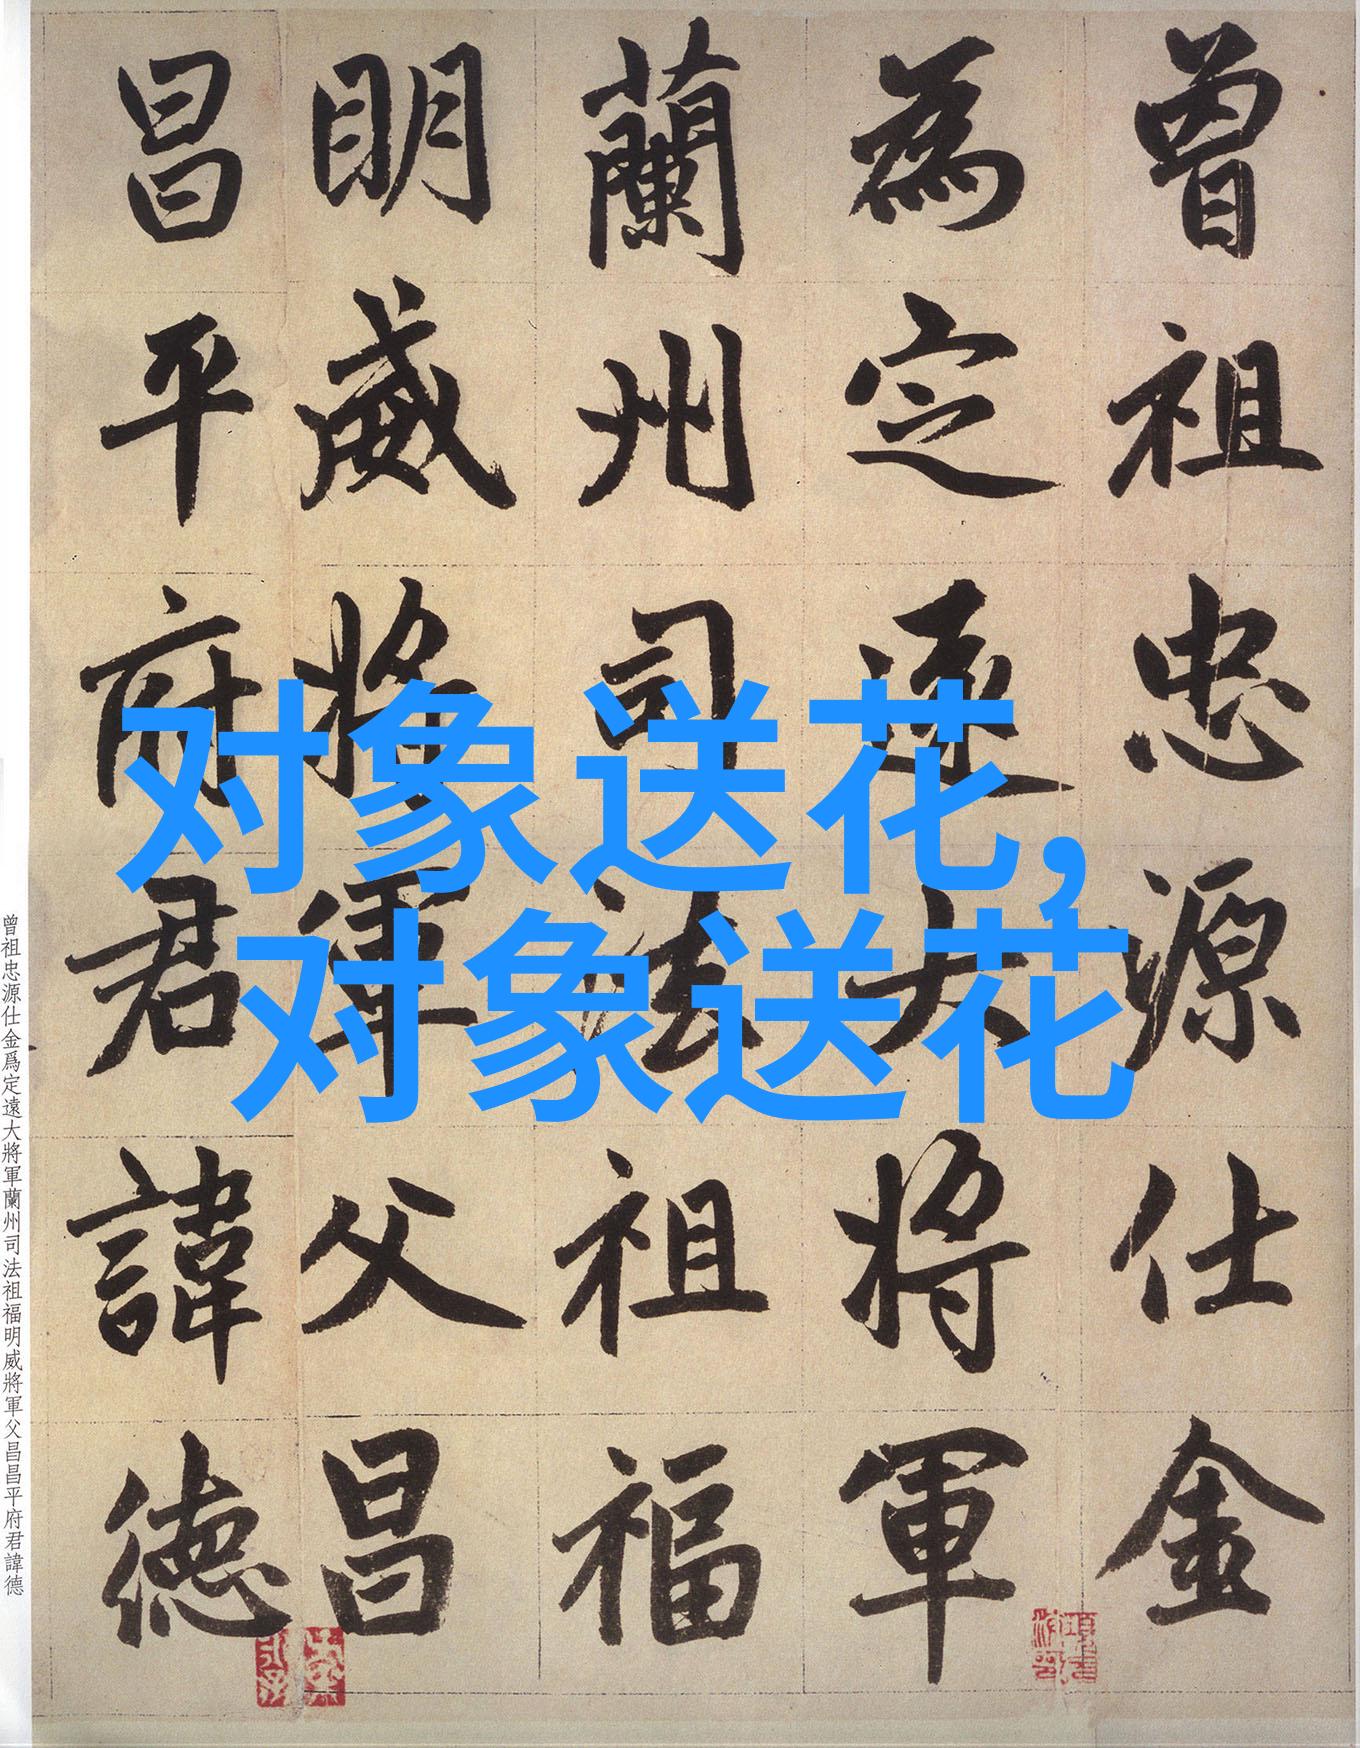 曾祖忠源仕金
為定遠大將軍
蘭州司法祖福
明威將軍父昌
昌平府君諱德
对象送花，
对象送花
曾祖忠源仕金爲定遠大將軍蘭州司法祖福明威將軍父昌昌平府君諱德